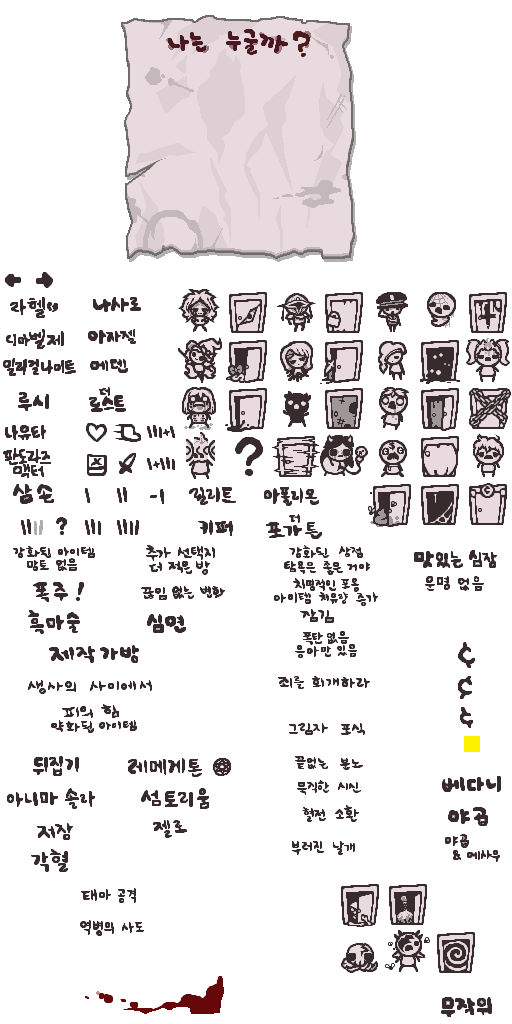 나는 누굴까?
라헬
나사로
디마벨제
아자젤
밀리컬나이트
에덴
루시
더
로스트
나유타
판도라즈
막터
삼손
릴리트
아폴리온
?
키퍼
더
포가튼
강화된 아이템
맘모 없음
추가 선택지
더 적은 방
강화된 상점
탐욕은 좋은 거야
맛있는 심장
운명 없음
폭주!
끊임 없는 변화
치명적인 포옹
아이템 치유량 증가
흑마술
심연
잠김
폭탄 없음
응아만 있음
제작 가방
생사의 사이에서
죄를 회개하라
¢
¢
¢
피의 힘
약화된 아이템
그림자 포식
뒤집기
레메게톤
끝없는 분노
아니마 솔라
섬토리움
묵직한 시신
베다니
저장
젤로
혈전 소환
야곱
각혈
부러진 날개
야곱
& 에사우
태아 공격
역병의 사도
무작위